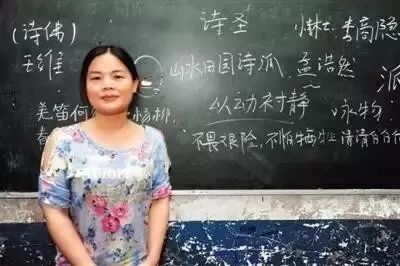 (诗佛)
王维
诗圣
小李杜 李商隐
山水田园诗派 孟浩然
派
羌笛何 杨柳
春
以动衬静
咏物:
不畏艰险, 不怕牺牲 清清白白